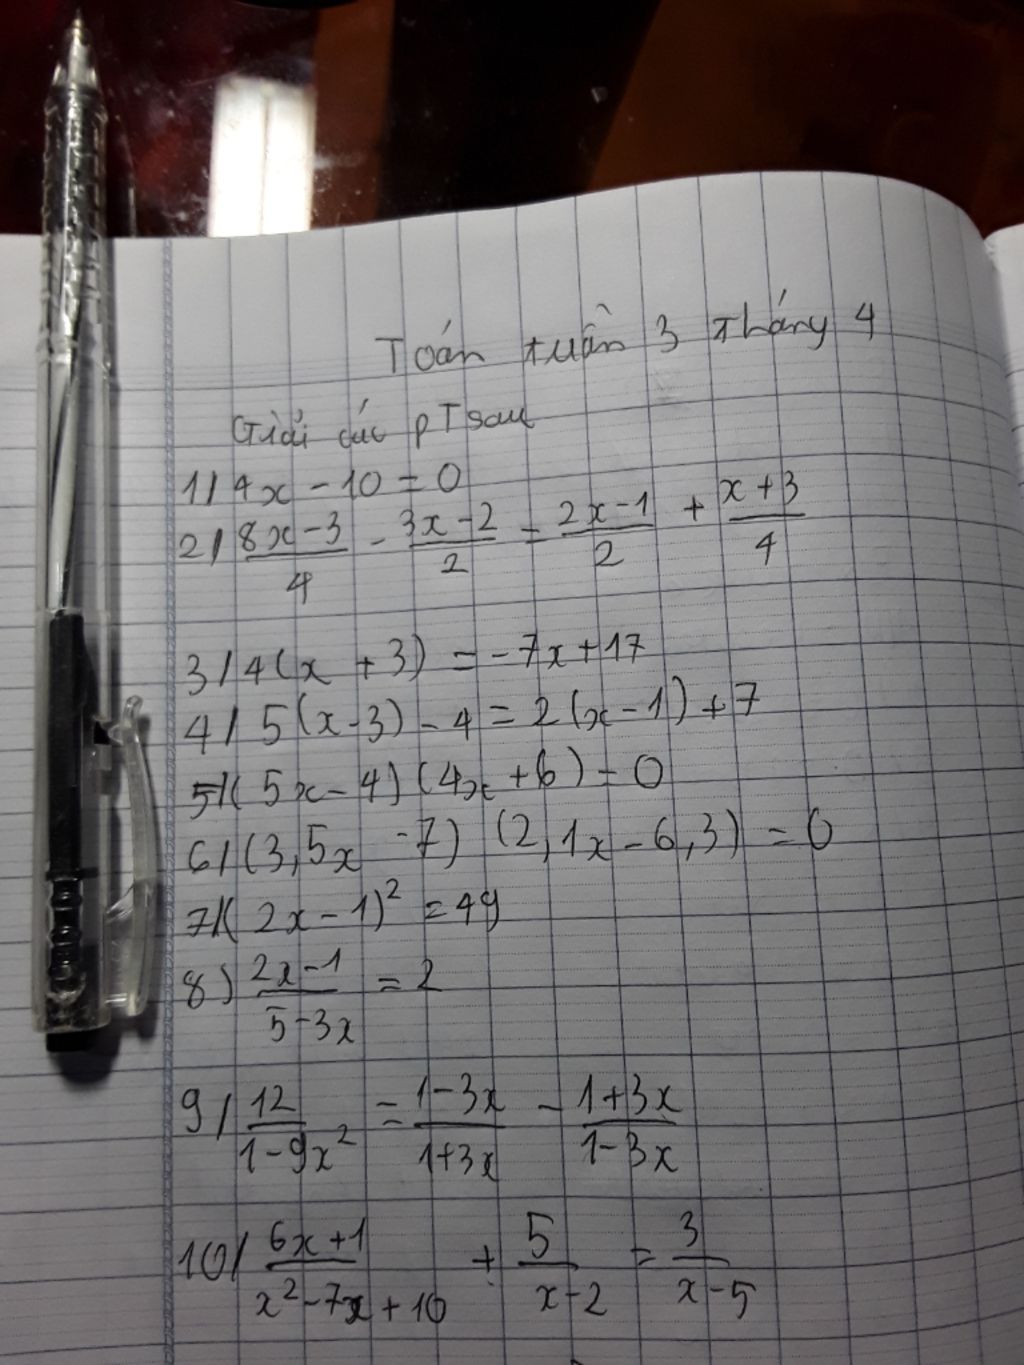 Toán tuần 3 tháng 4
Giải các pT sau
1/ 4x - 10 = 0
2/ \frac{8x-3}{4} - \frac{3x-2}{2} = \frac{2x-1}{2} + \frac{x+3}{4}
3/ 4(x + 3) = -7x+17
4/ 5(x-3) - 4 = 2(x-1) + 7
5/ (5x-4)(4x+6) = 0
6/ (3,5x - 7) (2,1x - 6,3) = 0
7/ (2x-1)² = 49
8) \frac{2x-1}{5-3x} = 2
9/ \frac{12}{1-9x²} = \frac{1-3x}{1+3x} - \frac{1+3x}{1-3x}
10/ \frac{6x+1}{x²-7x+10} + \frac{5}{x-2} = \frac{3}{x-5}